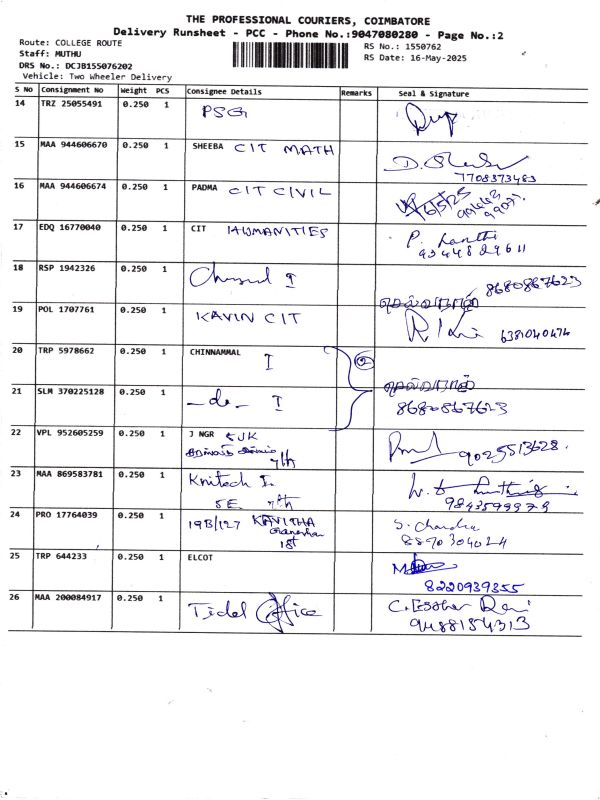 THE PROFESSIONAL COURIERS, COIMBATORE
Delivery Runsheet - PCC - Phone No.:9047080280 - Page No.:2
Route: COLLEGE ROUTE
Staff: MUTHU
DRS No.: DCJB155076202
Vehicle: Two Wheeler Delivery
RS No.: 1550762
RS Date: 16-May-2025
S No Consignment No Weight PCS Consignee Details Remarks Seal & Signature
14 TRZ 25055491 0.250 1 PSG
15 MAA 944606670 0.250 1 SHEEBA CIT MATH
7708373483
16 MAA 944606674 0.250 1 PADMA CIT CIVIL
17 EDQ 16770040 0.250 1 CIT HUMANITIES
9344829611
18 RSP 1942326 0.250 1 I
8680867623
19 POL 1707761 0.250 1 KAVIN CIT
6381040474
20 TRP 5978662 0.250 1 CHINNAMMAL I 2
21 SLM 370225128 0.250 1 -do- I
8680867623
22 VPL 952605259 0.250 1 J NGR SJK
7th
9025513628.
23 MAA 869583781 0.250 1 Knitech I.
5E 7th
24 PRO 17764039 0.250 1 19B/127 KAVITHA
1st
S. Chandra
8870304024
25 TRP 644233 0.250 1 ELCOT
8220939355
26 MAA 200084917 0.250 1 Tidel Office
C. Esther Rani
9488154313